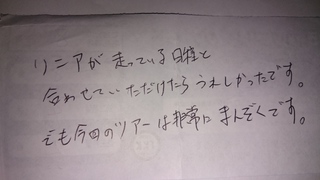 リニアが走っている日程と
合わせていただけたらうれしかったです。
でも今回のツアーは非常にまんぞくです。